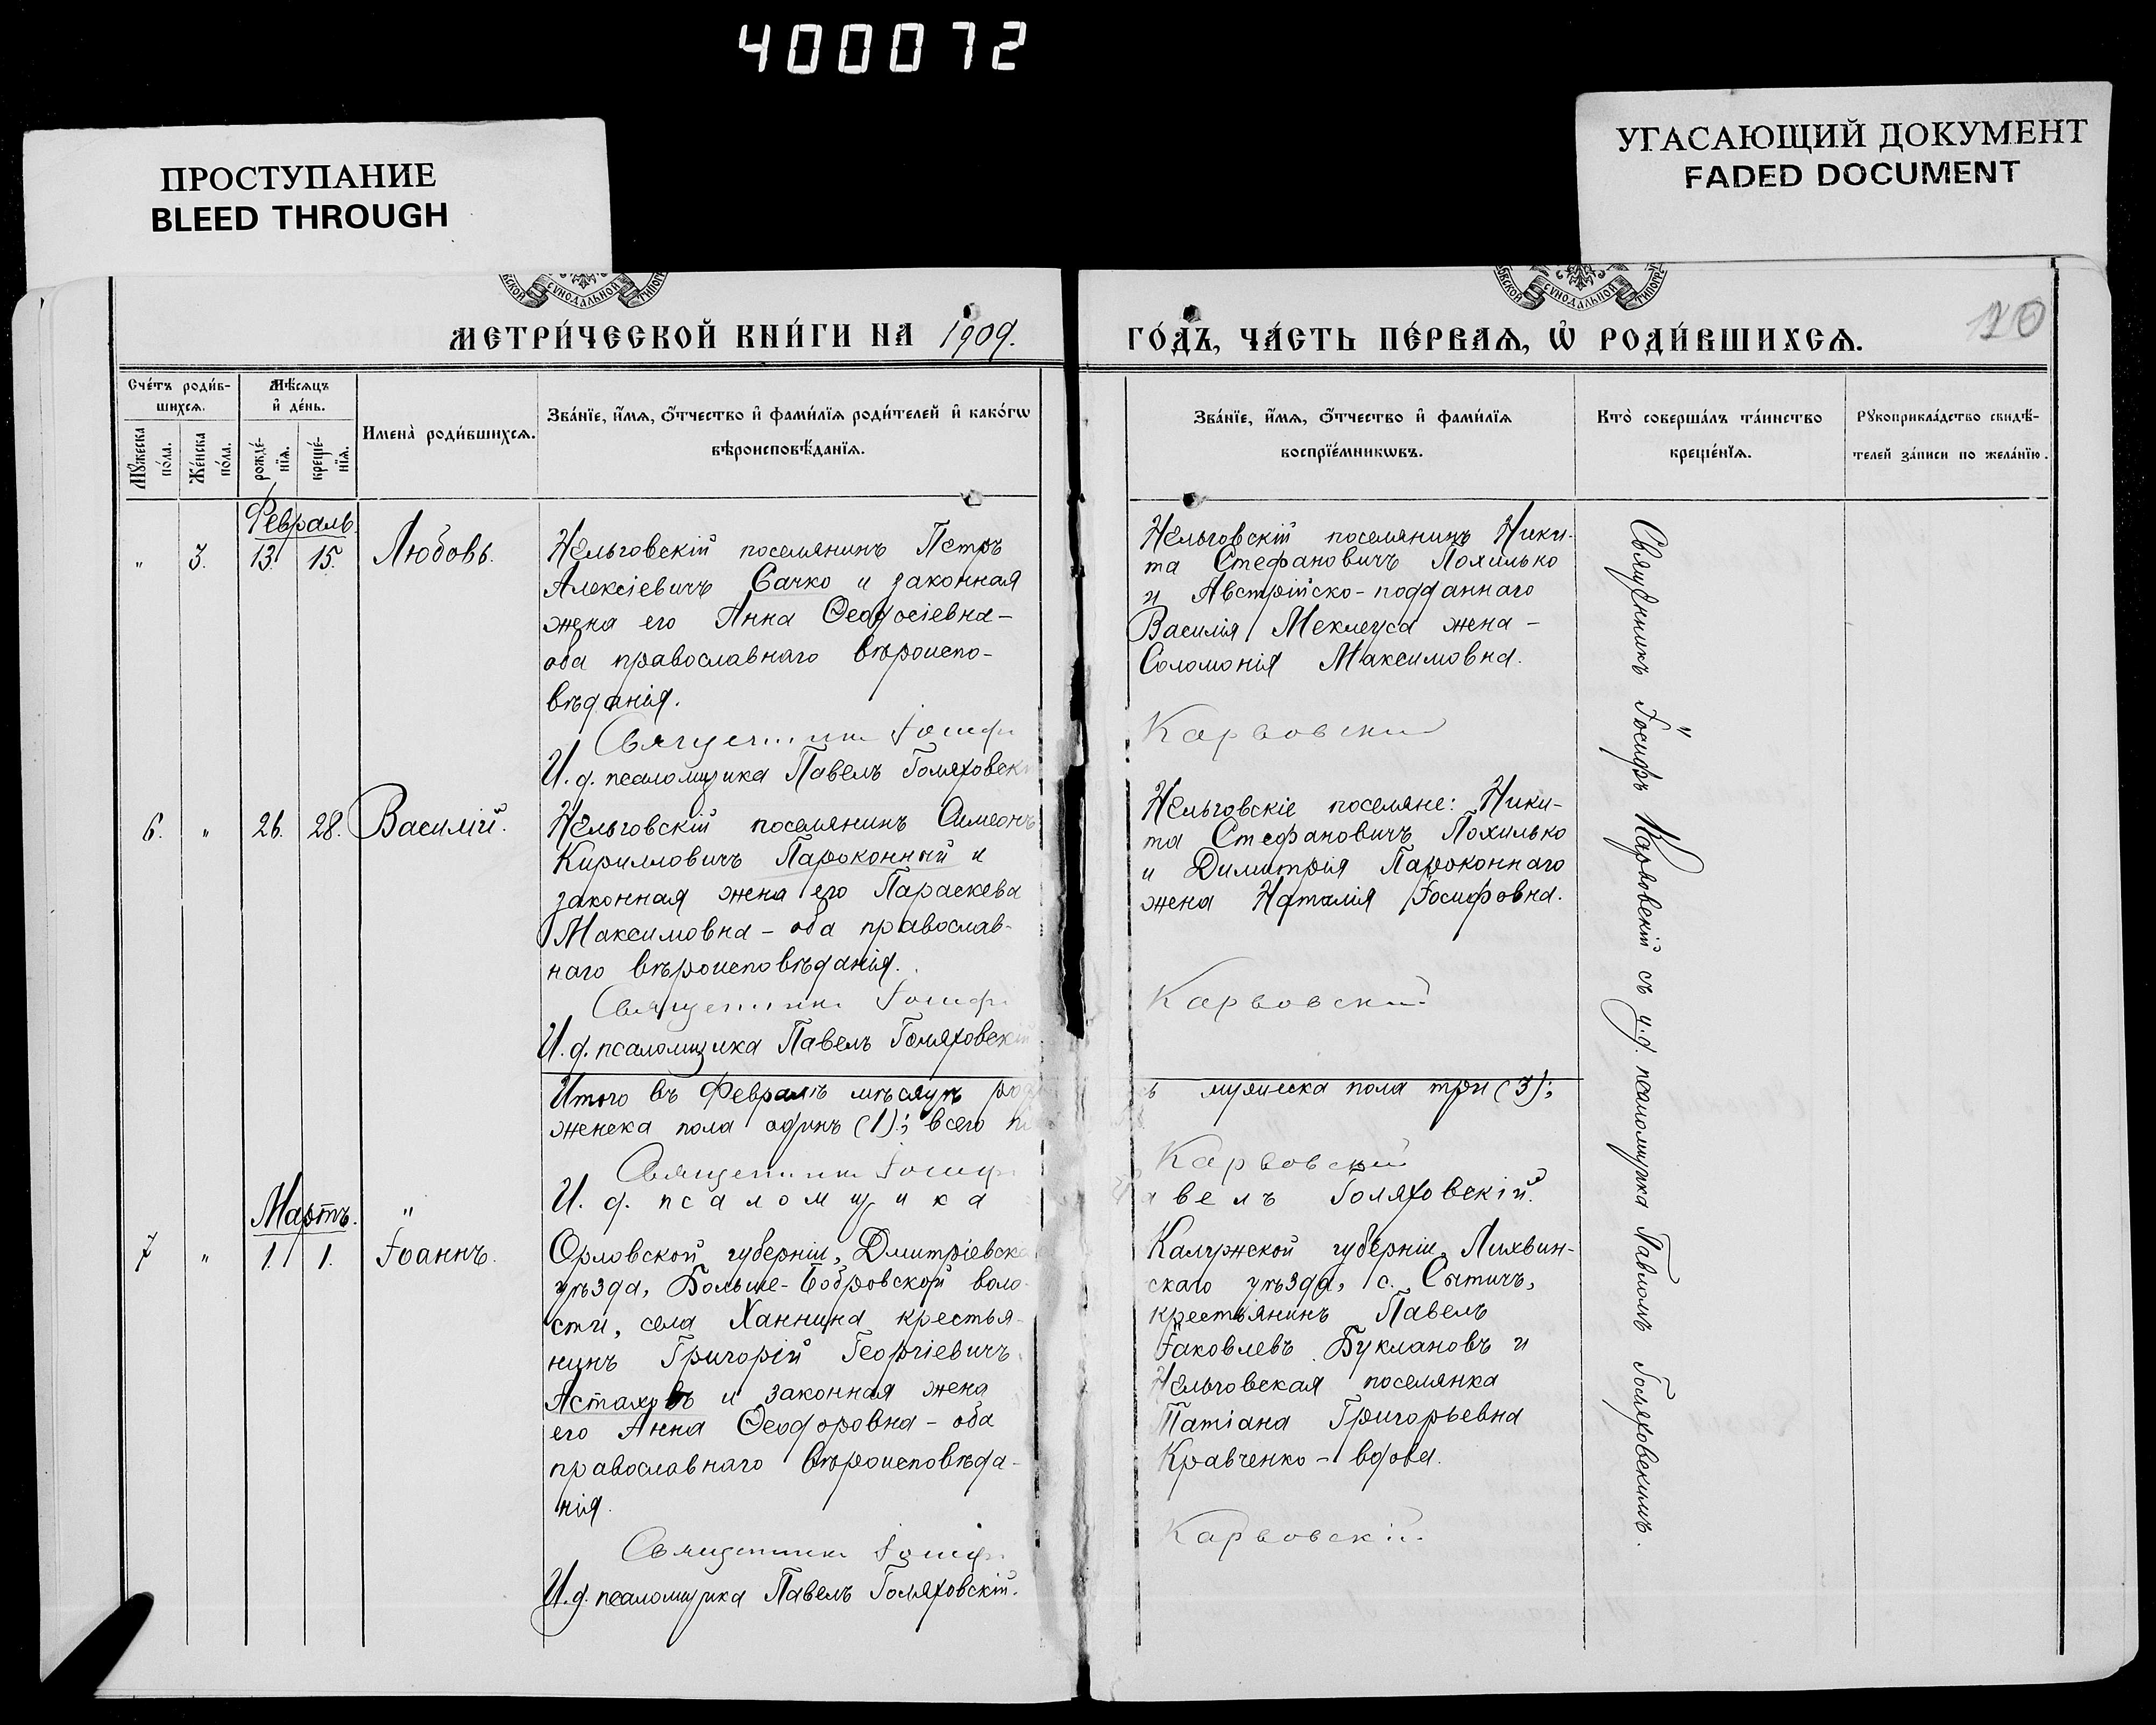 400072
ПРОСТУПАНИЕ
BLEED THROUGH
УГАСАЮЩИЙ ДОКУМЕНТ
FADED DOCUMENT
СУНОДАЛЬНОЙ
СУНОДАЛЬНОЙ
МЕТРИ́ЧЕСКОЙ КНИ́ГИ НА 1909.
ГО́ДЪ, ЧА́СТЬ ПЕ́РВАѦ, Ѽ РОДИ́ВШИХСѦ.
Сче́тъ роди́в-
шихсѧ.
Мѣ́сѧцъ
и҆ де́нь.
Мꙋ́жеска
по́ла.
Же́нска
по́ла.
рожде́-
нїѧ.
креще́-
нїѧ.
Имена̀ роди́вшихсѧ.
Зва́нїе, и҆́мѧ, ѻ҆́тчество и҆ фами́лїѧ роди́телей и҆ како́гѡ
вѣроисповѣ́данїѧ.
Зва́нїе, и҆́мѧ, ѻ҆́тчество и҆ фами́лїѧ
воспрїе́мникѡвъ.
Кто̀ соверша́лъ та́инство
креще́нїѧ.
Рꙋкоприкла́дство свидѣ́-
телей за́писи по жела́нїю.
Февраль.
" 3. 13. 15. Любовь.
Нельговскій поселянинъ Петръ
Алексіевичъ Сачко и законная
жена его Анна Ѳеодосіевна –
оба православнаго вѣроиспо-
вѣданія.
Священникъ Іосифъ
И. д. псаломщика Павелъ Голяховскі
Нельговскій поселянинъ Ники-
та Стефановичъ Похилько
и Австрійско-подданнаго
Василія Меклеуса жена –
Соломонія Максимовна.
Карвовскій
6. " 26. 28. Василій.
Нельговскій поселянинъ Симеонъ
Кирилловичъ Пароконный и
законная жена его Параскева
Максимовна – оба православ-
наго вѣроисповѣданія.
Священникъ Іосифъ
И. д. псаломщика Павелъ Голяховскій
Нельговскіе поселяне: Ники-
та Стефановичъ Похилько
и Димитрія Пароконнаго
жена Наталія Іосифовна.
Карвовскій
Итого въ Февралѣ мѣсяцѣ
женска пола одинъ (1); всего
мужеска пола три (3);
Священникъ Іосифъ
Карвовскій
И. д. псаломщика
авелъ Голяховскій.
Мартъ. "
7 " 1. 1. Іоаннъ.
Орловской губерніи, Дмитріевска
уѣзда, Больше-Бобровской воло-
сти, села Ханнина крестья-
нинъ Григорій Георгіевичъ
Астаховъ и законная жена
его Анна Ѳеодоровна – оба
православнаго вѣроисповѣда-
нія.
Священникъ Іосифъ
И. д. псаломщика Павелъ Голяховскій.
Калужской губерніи, Лихвин-
скаго уѣзда, с. Сытичъ,
крестьянинъ Павелъ
Іаковлевъ Буклановъ и
Нельговская поселянка
Татіана Григорьевна
Кравченко – вдова.
Карвовскій
Священникъ Іосифъ Карвовскій съ и.д. псаломщика Павломъ Голяховскимъ.